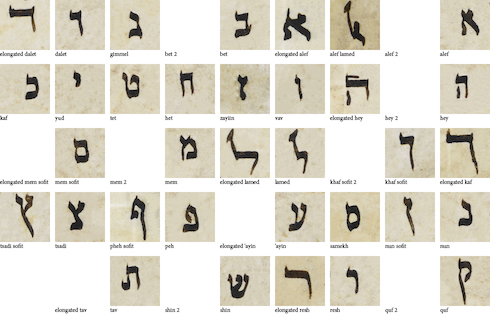 א ﭏ א ב ג ד ד
elongated dalet dalet gimmel bet 2 bet elongated alef alef lamed alef 2 alef
ה ה ו ז ח ט י כ
kaf yud tet het zayiin vav elongated hey hey 2 hey
ך ך ל ל מ ם
elongated mem sofit mem sofit mem 2 mem elongated lamed lamed khaf sofit 2 khaf sofit elongated kaf
נ ן ס ע פ ף צ ץ
tsadi sofit tsadi pheh sofit peh elongated 'ayin 'ayin samekh nun sofit nun
ק ר ר ש ת
elongated tav tav shin 2 shin elongated resh resh quf 2 quf